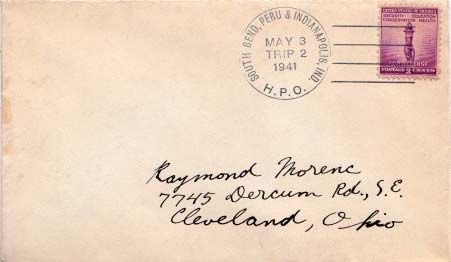 SOUTH BEND, PERU & INDIANAPOLIS, IND.
MAY 3
TRIP 2
1941
H.P.O.
UNITED STATES OF AMERICA
SECURITY EDUCATION
CONSERVATION HEALTH
FOR DEFENSE
POSTAGE 3 CENTS
Raymond Morenc
7745 Dercum Rd., S.E.
Cleveland, Ohio